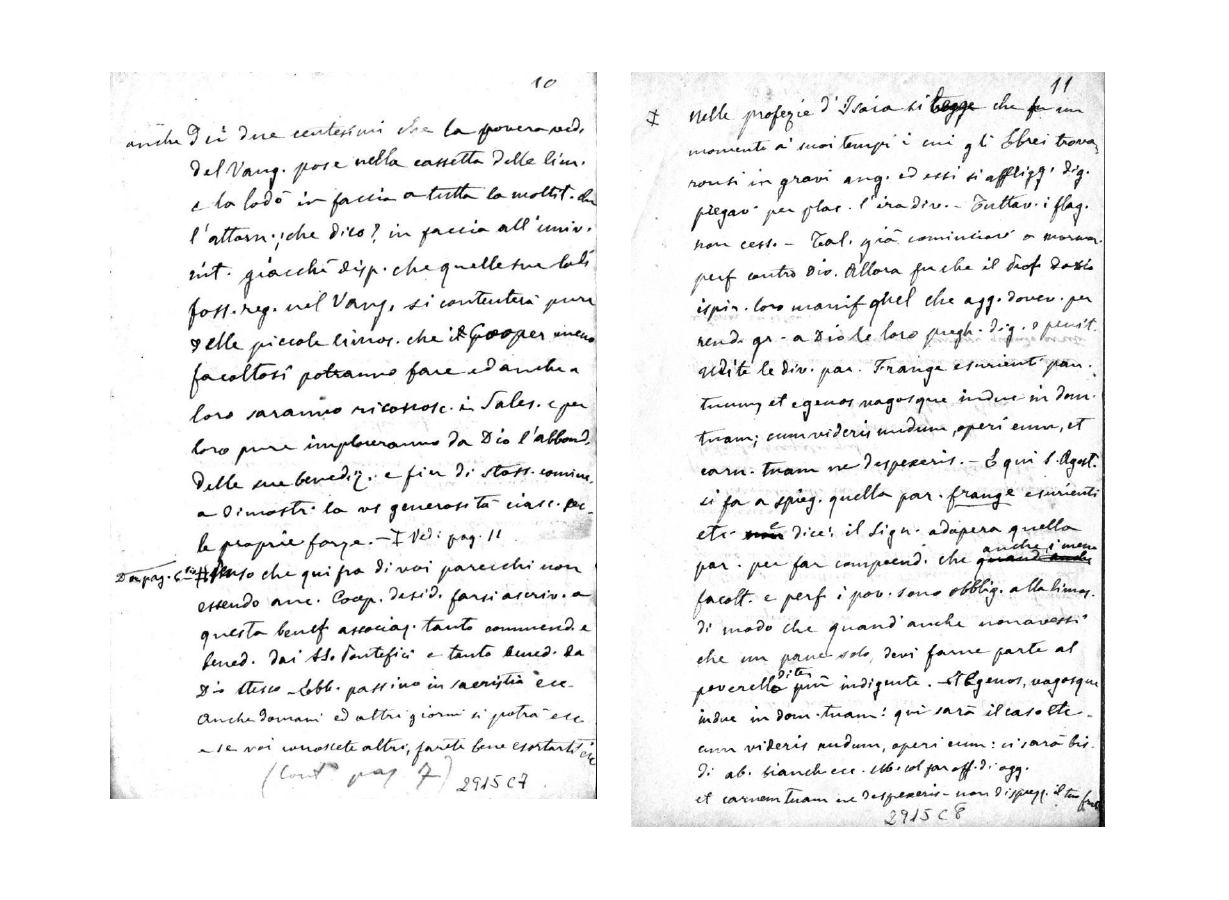 10
anche Dei due centesimi che la povera ved.
del Vang. pose nella cassetta delle lim.
e la lodò in faccia a tutta la moltit. che
l'attorn.; che dico? in faccia all'univ.
int. giacchè disp. che quelle sue lodi
foss. reg. nel Vang, si contenterà pure
delle piccole limos. che i Coop. meno
facoltosi potranno fare ed anche a
loro saranno riconosc. i Sales. e per
loro pure imploreranno da Dio l'abbond.
delle sue benediz. e fin di stass. cominc.
a dimostr. la vs generosità ciasc. sec.
le proprie forze. - Vedi pag. 11
Da pag. 6 Penso che qui fra di voi parecchi non
essendo anc. Coop. desid. farsi ascriv. a
questa benef associaz. tanto commend. e
bened. dai SS. Pontefici e tanto bened. da
Dio stesso - Ebb. passino in sacristia ecc.
Anche domani ed altri giorni si potrà ecc
e se voi conoscete altri, farete bene esortarli ecc
(Cont pag 7) 2915 C7
11
Nelle profezie d'Isaia si legge che fu un
momento a' suoi tempi i cui gli Ebrei trova-
ronsi in gravi ang. ed essi si affligg, dig.
pregav per plac. l'ira div. - Tuttav. i flag.
non cess. - Tal. già cominciav a mormor.
perf contro Dio. Allora fu che il Prof
ispir. loro manif quel che agg. dovev. per
rend. gr. a Dio le loro pregh. dig. e penit.
Udite le div. par. Frange esurienti pan.
tuum, et egenos vagosque induc in dom.
tuam; cum videris nudum, operi eum, et
carn. tuam ne despexeris. - E qui S. Agost.
si fa a spieg. quella par. frange esurienti
etc e dice: il Sign. adopera quella
par. per far comprend. che anche i meno
facolt. e perf i pov. sono obblig. alla limos.
di modo che quand'anche non avessi
che un pane solo, devi farne parte al
poverello di te più indigente. - Egenos, vagosque
induc in dom. tuam: qui sarà il caso etc -
cum videris nudum, operi eum: ci sarà bis.
di ab. bianch ecc. Ebb. col far off. di ogg.
et carnem tuam ne despexeris - non disprezz. il tuo frat
2915 C8